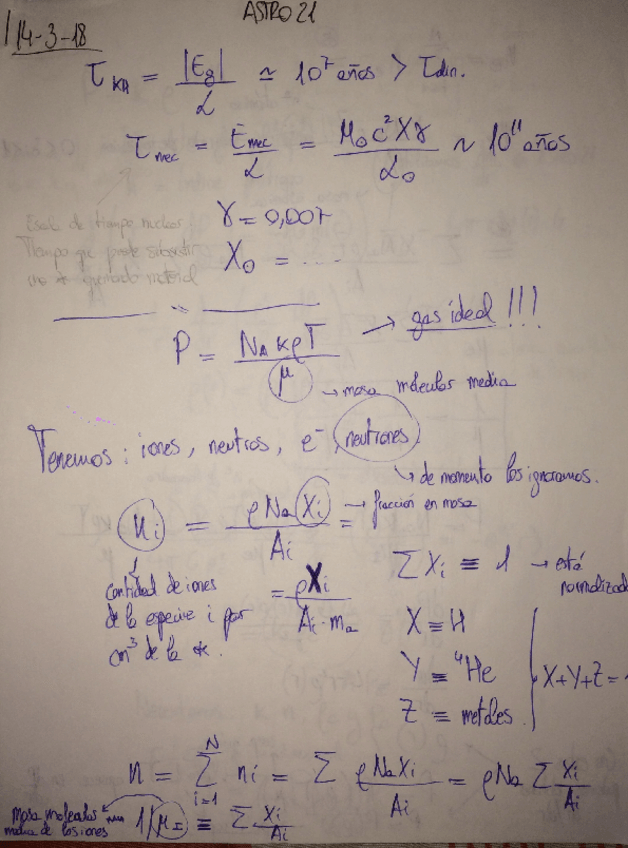 ASTRO 21
14-3-18
τ_KH = |Eg| / L ≃ 10^7 años > τ_din.
τ_nuc = E_nuc / L = M_⊙ c² X γ / L_⊙ ~ 10^11 años
Escala de tiempo nuclear
γ = 0,007
Tiempo que puede subsistir
X_⊙ = ....
quemando material
P = N_A κ ρ T / μ → gas ideal !!!
→ masa molecular media
Tenemos: iones, neutros, e⁻, neutrones.
→ de momento los ignoramos.
n_i = ρ N_a X_i / A_i = → fracción en masa
cantidad de iones de la especie i por cm³ de la *.
= ρ X_i / A_i · m_a
Σ X_i ≡ 1 → está normalizado
X ≡ H
Y ≡ ⁴He
Z ≡ metales.
X+Y+Z =
n = Σ_{i=1}^{N} n_i = Σ ρ N_a X_i / A_i = ρ N_a Σ X_i / A_i
masa molecular media de los iones
1/μ_I ≡ Σ X_i / A_i